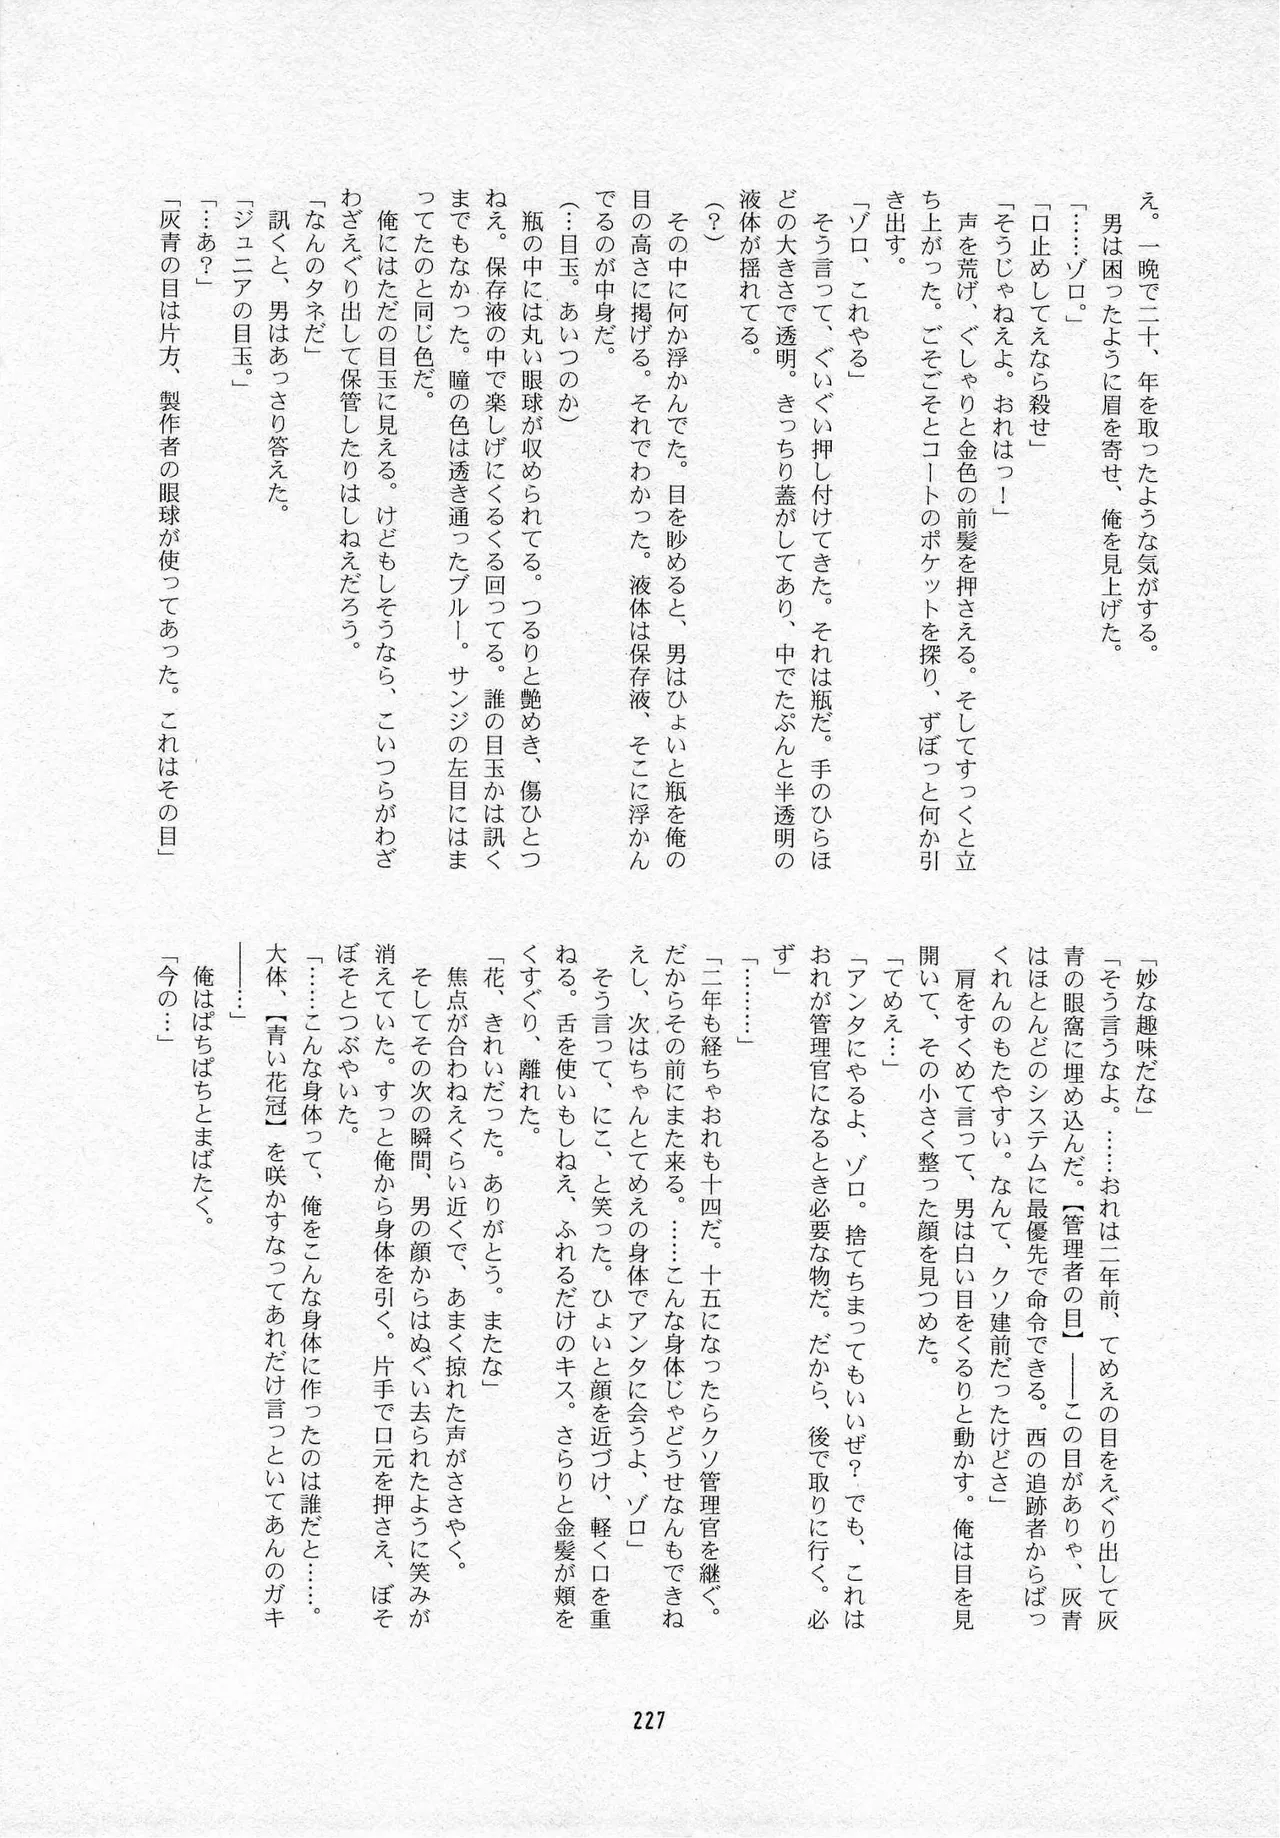 え。一晩で二十、年を取ったような気がする。
　男は困ったように眉を寄せ、俺を見上げた。
「……ゾロ。」
「口止めしてえなら殺せ」
「そうじゃねえよ。おれはっ！」
　声を荒げ、ぐしゃりと金色の前髪を押さえる。そしてすっくと立
ち上がった。ごそごそとコートのポケットを探り、ずぼっと何か引
き出す。
「ゾロ、これやる」
　そう言って、ぐいぐい押し付けてきた。それは瓶だ。手のひらほ
どの大きさで透明。きっちり蓋がしてあり、中でたぷんと半透明の
液体が揺れてる。
（？）
　その中に何か浮かんでた。目を眇めると、男はひょいと瓶を俺の
目の高さに掲げる。それでわかった。液体は保存液、そこに浮かん
でるのが中身だ。
（…目玉。あいつのか）
　瓶の中には丸い眼球が収められてる。つるりと艶めき、傷ひとつ
ねえ。保存液の中で楽しげにくるくる回ってる。誰の目玉かは訊く
までもなかった。瞳の色は透き通ったブルー。サンジの左目にはま
ってたのと同じ色だ。
　俺にはただの目玉に見える。けどもしそうなら、こいつらがわざ
わざえぐり出して保管したりはしねえだろう。
「なんのタネだ」
　訊くと、男はあっさり答えた。
「ジュニアの目玉。」
「…あ？」
「灰青の目は片方、製作者の眼球が使ってあった。これはその目」
「妙な趣味だな」
「そう言うなよ。……おれは二年前、てめえの目をえぐり出して灰
青の眼窩に埋め込んだ。【管理者の目】――この目がありゃ、灰青
はほとんどのシステムに最優先で命令できる。西の追跡者からばっ
くれんのもたやすい。なんて、クソ建前だったけどさ」
　肩をすくめて言って、男は白い目をくるりと動かす。俺は目を見
開いて、その小さく整った顔を見つめた。
「てめえ…」
「アンタにやるよ、ゾロ。捨てちまってもいいぜ？でも、これは
おれが管理官になるとき必要な物だ。だから、後で取りに行く。必
ず」
「………」
「二年も経ちゃおれも十四だ。十五になったらクソ管理官を継ぐ。
だからその前にまた来る。……こんな身体じゃどうせなんもできね
えし、次はちゃんとてめえの身体でアンタに会うよ、ゾロ」
　そう言って、にこ、と笑った。ひょいと顔を近づけ、軽く口を重
ねる。舌を使いもしねえ、ふれるだけのキス。さらりと金髪が頬を
くすぐり、離れた。
「花、きれいだった。ありがとう。またな」
　焦点が合わねえくらい近くで、あまく掠れた声がささやく。
　そしてその次の瞬間、男の顔からはぬぐい去られたように笑みが
消えていた。すっと俺から身体を引く。片手で口元を押さえ、ぼそ
ぼそとつぶやいた。
「……こんな身体って、俺をこんな身体に作ったのは誰だと……。
大体、【青い花冠】を咲かすなってあれだけ言っといてあんのガキ
――…」
　俺はぱちぱちとまばたく。
「今の…」
227